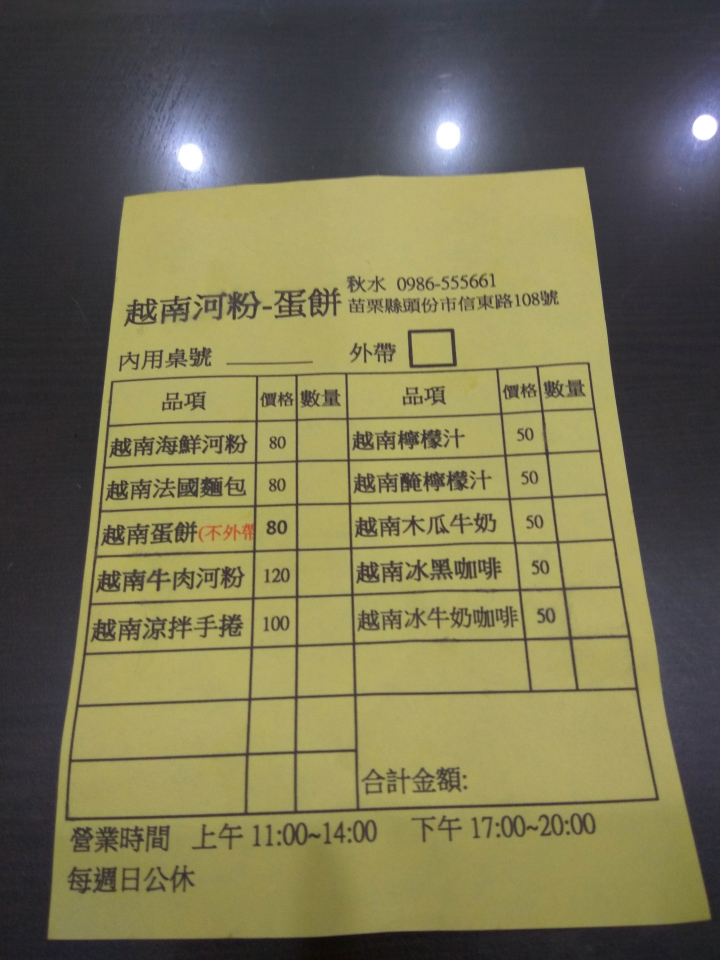 秋水 0986-555661
越南河粉-蛋餅 苗栗縣頭份市信東路108號
內用桌號 ________ 外帶
品項 價格 數量 品項 價格 數量
越南海鮮河粉 80 越南檸檬汁 50
越南法國麵包 80 越南醃檸檬汁 50
越南蛋餅(不外帶 80 越南木瓜牛奶 50
越南牛肉河粉 120 越南冰黑咖啡 50
越南涼拌手捲 100 越南冰牛奶咖啡 50
合計金額:
營業時間 上午 11:00~14:00 下午 17:00~20:00
每週日公休